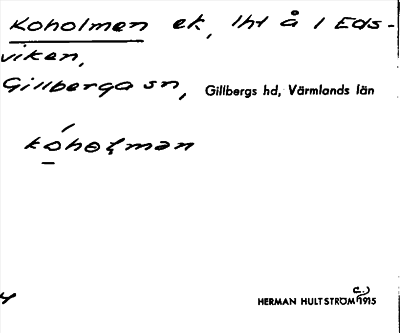 Koholmen ek, lht å i Eds-
viken,
Gillberga sn, Gillbergs hd, Värmlands län
kóholman
HERMAN HULTSTRÖM c.) 1915